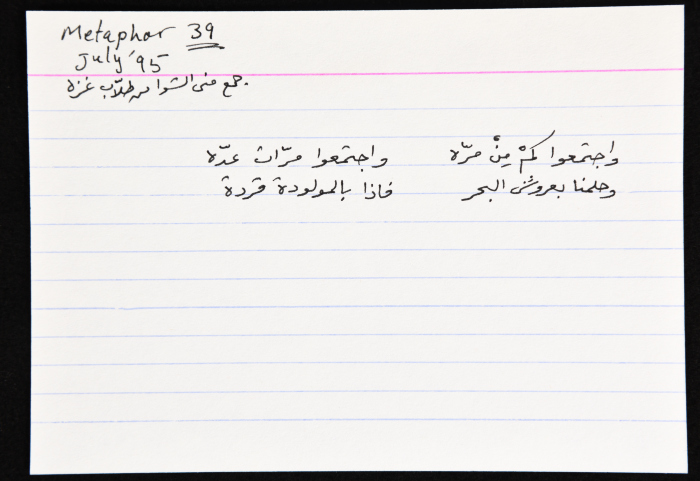 Metaphor 39
July '95
جمع منى الشوا من طلّاب غزة
واجتمعوا كمْ مِنْ مرّة واجتمعوا مرّات عدّة
وحلمنا بعروسِ البحر فاذا بالمولودة قردة